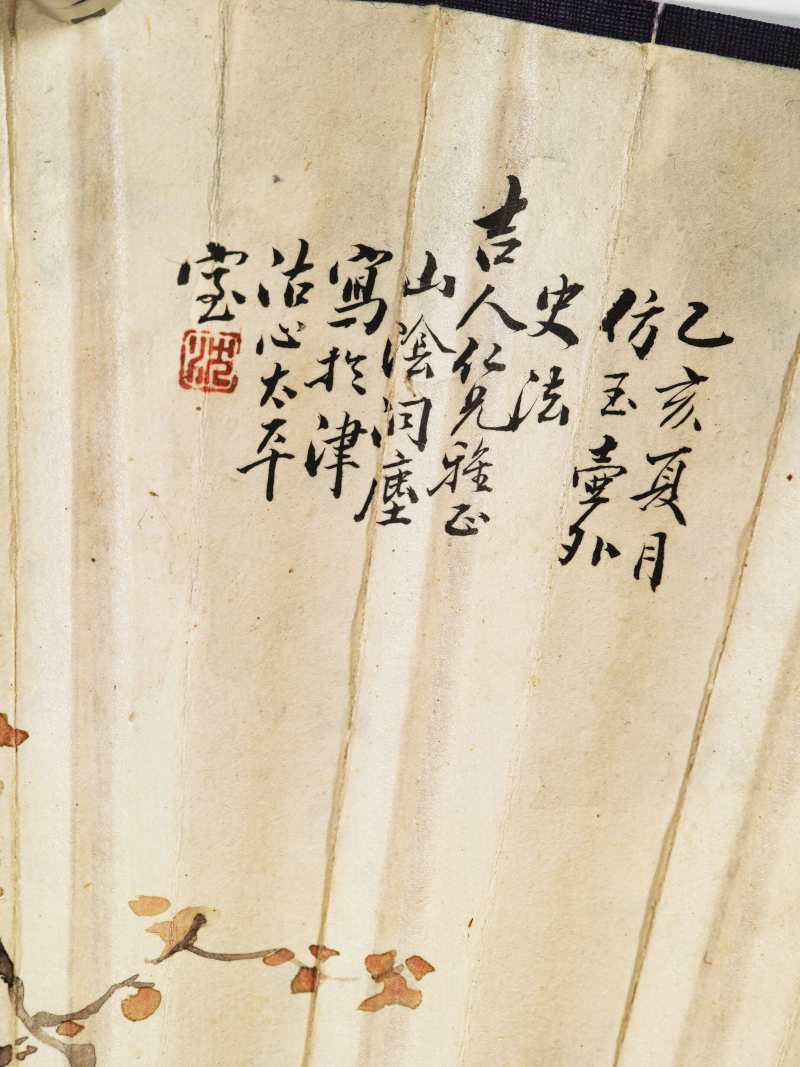 乙亥夏月
仿玉壺外
史法
吉人仁兄雅正
山陰问塵
寫於津
沽心太平
室